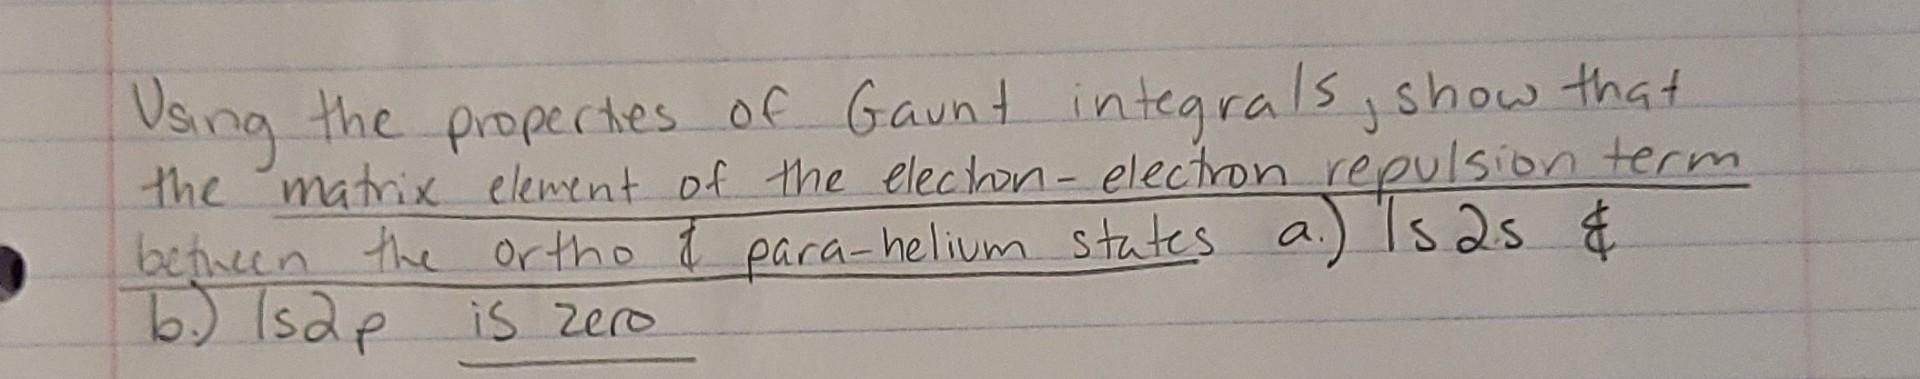 Using the properties of Gaunt integrals, show that
the matrix element of the electron-electron repulsion term
between the ortho & para-helium states a.) 1s2s &
b.) 1s2p is zero